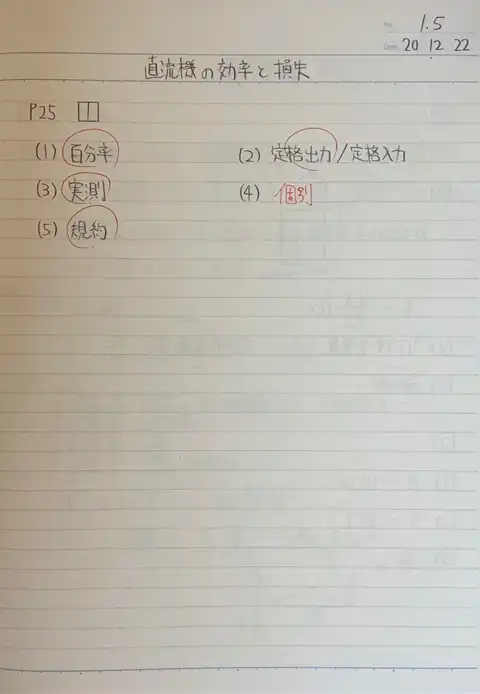 No. 1.5
Date 20 12 22
直流機の効率と損失
P25 1
(1) 百分率 (2) 定格出力/定格入力
(3) 実測 (4) 個別
(5) 規約